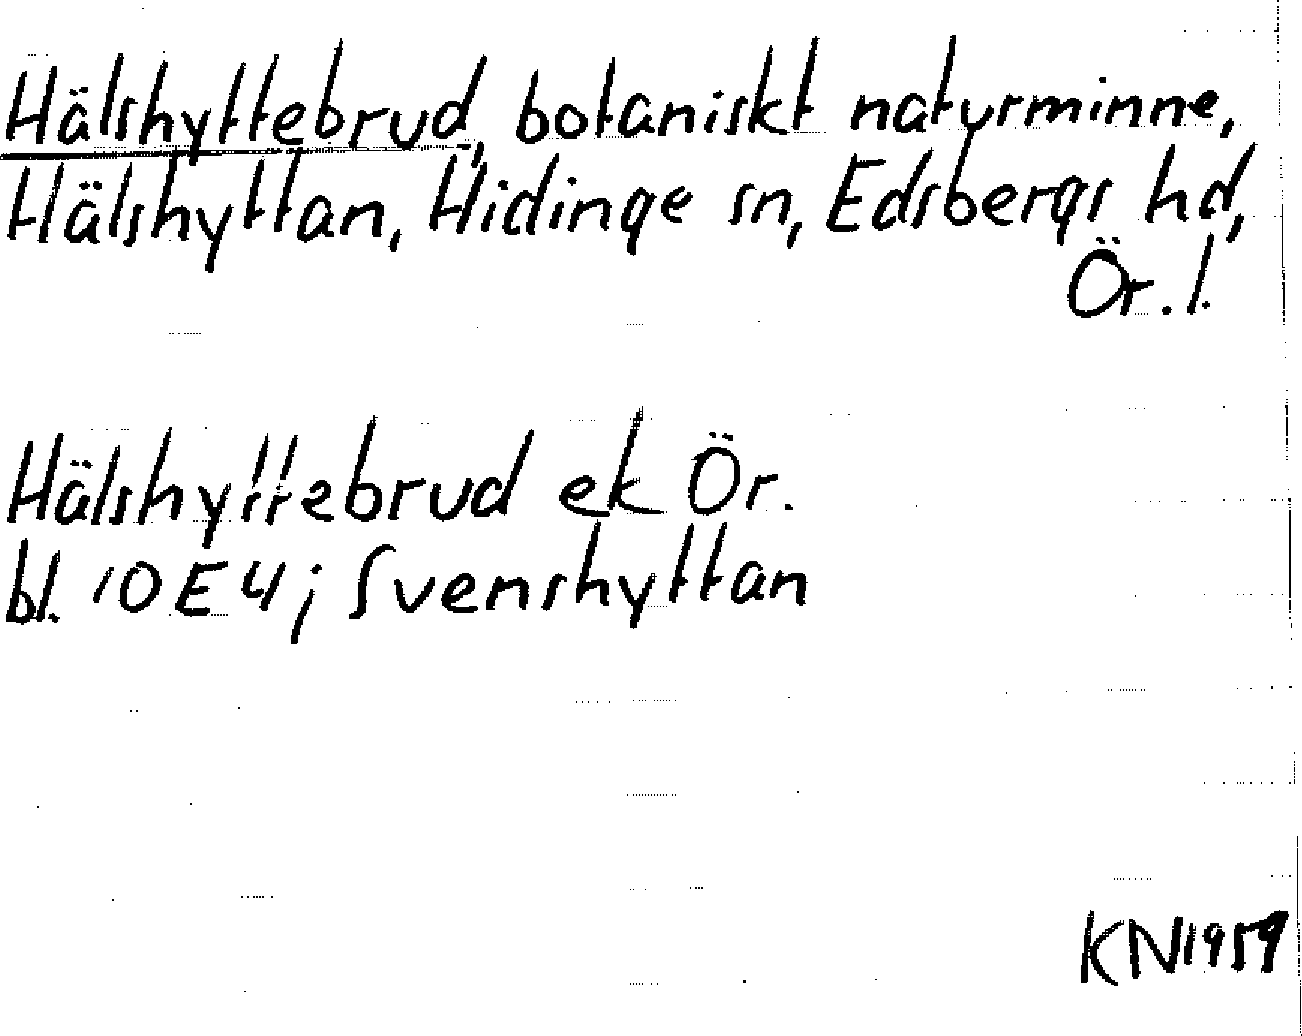 Hälshyttebrud, botaniskt naturminne,
Hälshyttan, Hidinge sn, Edsbergs hd,
Ör. l.
Hälshyttebrud ek Ör.
bl. 10E4; Svenshyttan
KN1959